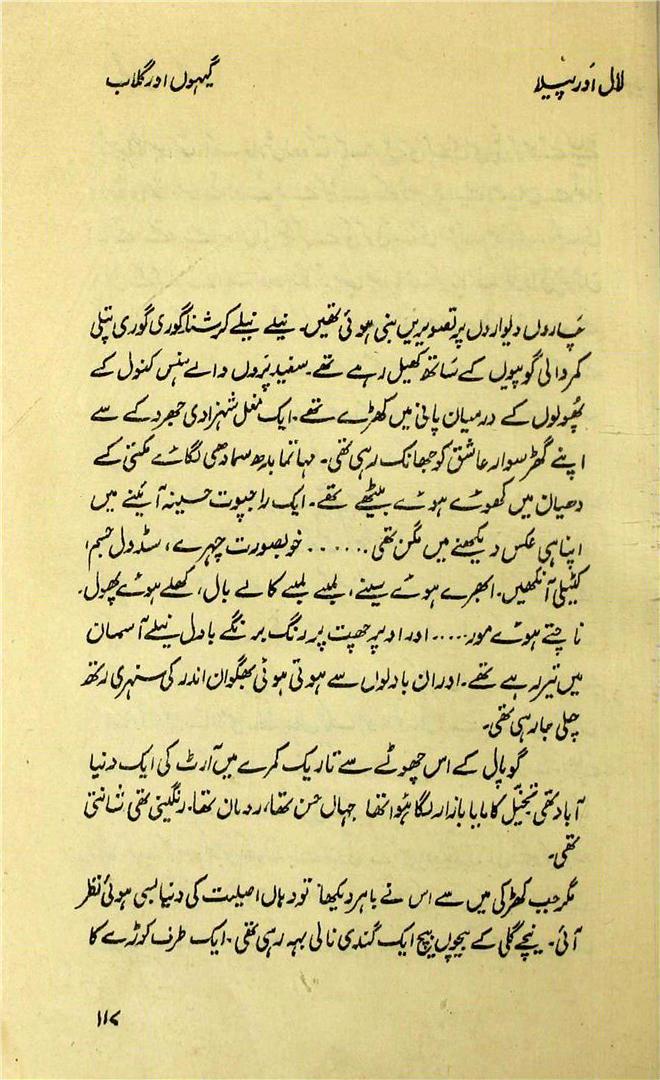 لال اور پیلا
گیہوں اور گلاب
چاروں دیواروں پر تصویریں بنی ہوئی تھیں۔ نیلے نیلے کرشنا گوری گوری پتلی
کمر والی گوپیوں کے ساتھ کھیل رہے تھے۔ سفید پروں والے ہنس کنول کے
پھولوں کے درمیان پانی میں کھڑے تھے۔ ایک مغل شہزادی جھروکے سے
اپنے گھڑ سوار عاشق کو جھانک رہی تھی۔ مہاتما بدھ سمادھی لگائے مکتی کے
دھیان میں کھوئے ہوئے بیٹھے تھے۔ ایک راجپوت حسینہ آئینے میں
اپنا ہی عکس دیکھنے میں مگن تھی ...... خوبصورت چہرے، سڈول جسم،
کٹیلی آنکھیں۔ ابھرے ہوئے سینے، لمبے لمبے کالے بال، کھلے ہوئے پھول۔
ناچتے ہوئے مور..... اور اوپر چھت پر رنگ برنگے بادل نیلے آسمان
میں تیر رہے تھے۔ اور ان بادلوں سے ہوتی ہوئی بھگوان اندر کی سنہری رتھ
چلی جا رہی تھی۔
گوپال کے اس چھوٹے سے تاریک کمرے میں آرٹ کی ایک دنیا
آباد تھی تخیّل کا مایا بازار لگا ہوا تھا جہاں حسن تھا، رومان تھا۔ رنگینی تھی شانتی
تھی۔
مگر جب کھڑکی میں سے اس نے باہر دیکھا تو وہاں اصلیت کی دنیا بسی ہوئی نظر
آئی۔ نیچے گلی کے بیچوں بیچ ایک گندی نالی بہہ رہی تھی۔ ایک طرف کوڑے کا
۱۱۷